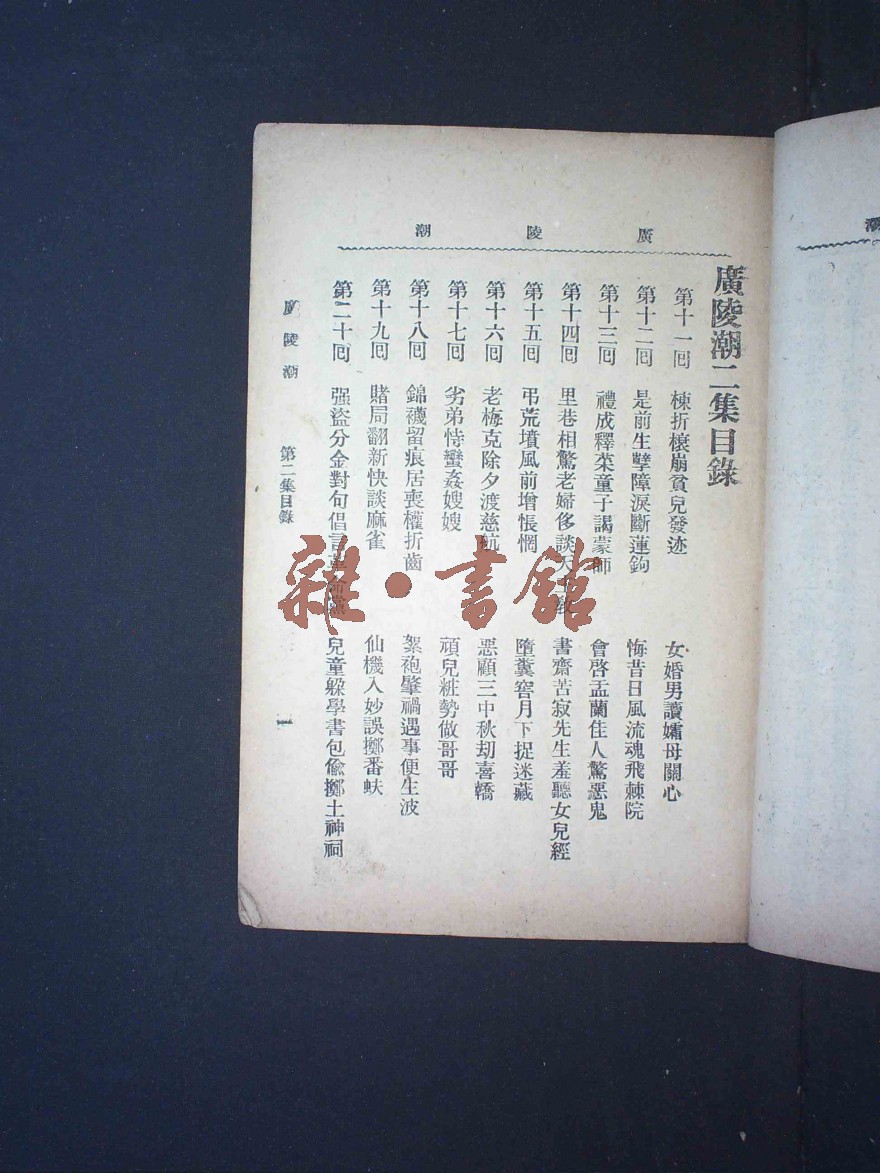 廣陵潮
廣陵潮二集目錄
第十一回 棟折榱崩貧兒發迹 女婚男讀孀母關心
第十二回 是前生孽障淚斷蓮鉤 悔昔日風流魂飛棘院
第十三回 禮成釋菜童子謁蒙師 會啓盂蘭佳人驚惡鬼
第十四回 里巷相驚老婦侈談天主教 書齋苦寂先生羞聽女兒經
第十五回 弔荒墳風前增悵惘 墮糞窖月下捉迷藏
第十六回 老梅克除夕渡慈航 惡顧三中秋刼喜轎
第十七回 劣弟恃蠻姦嫂嫂 頑兒粧勢做哥哥
第十八回 錦襪留痕居喪權折齒 絮袍肇禍遇事便生波
第十九回 賭局翻新快談麻雀 仙機入妙誤擲番蚨
第二十回 强盜分金對句倡言革命黨 兒童躲學書包偸擲土神祠
廣陵潮 第二集目錄 一
潮
雜·書館